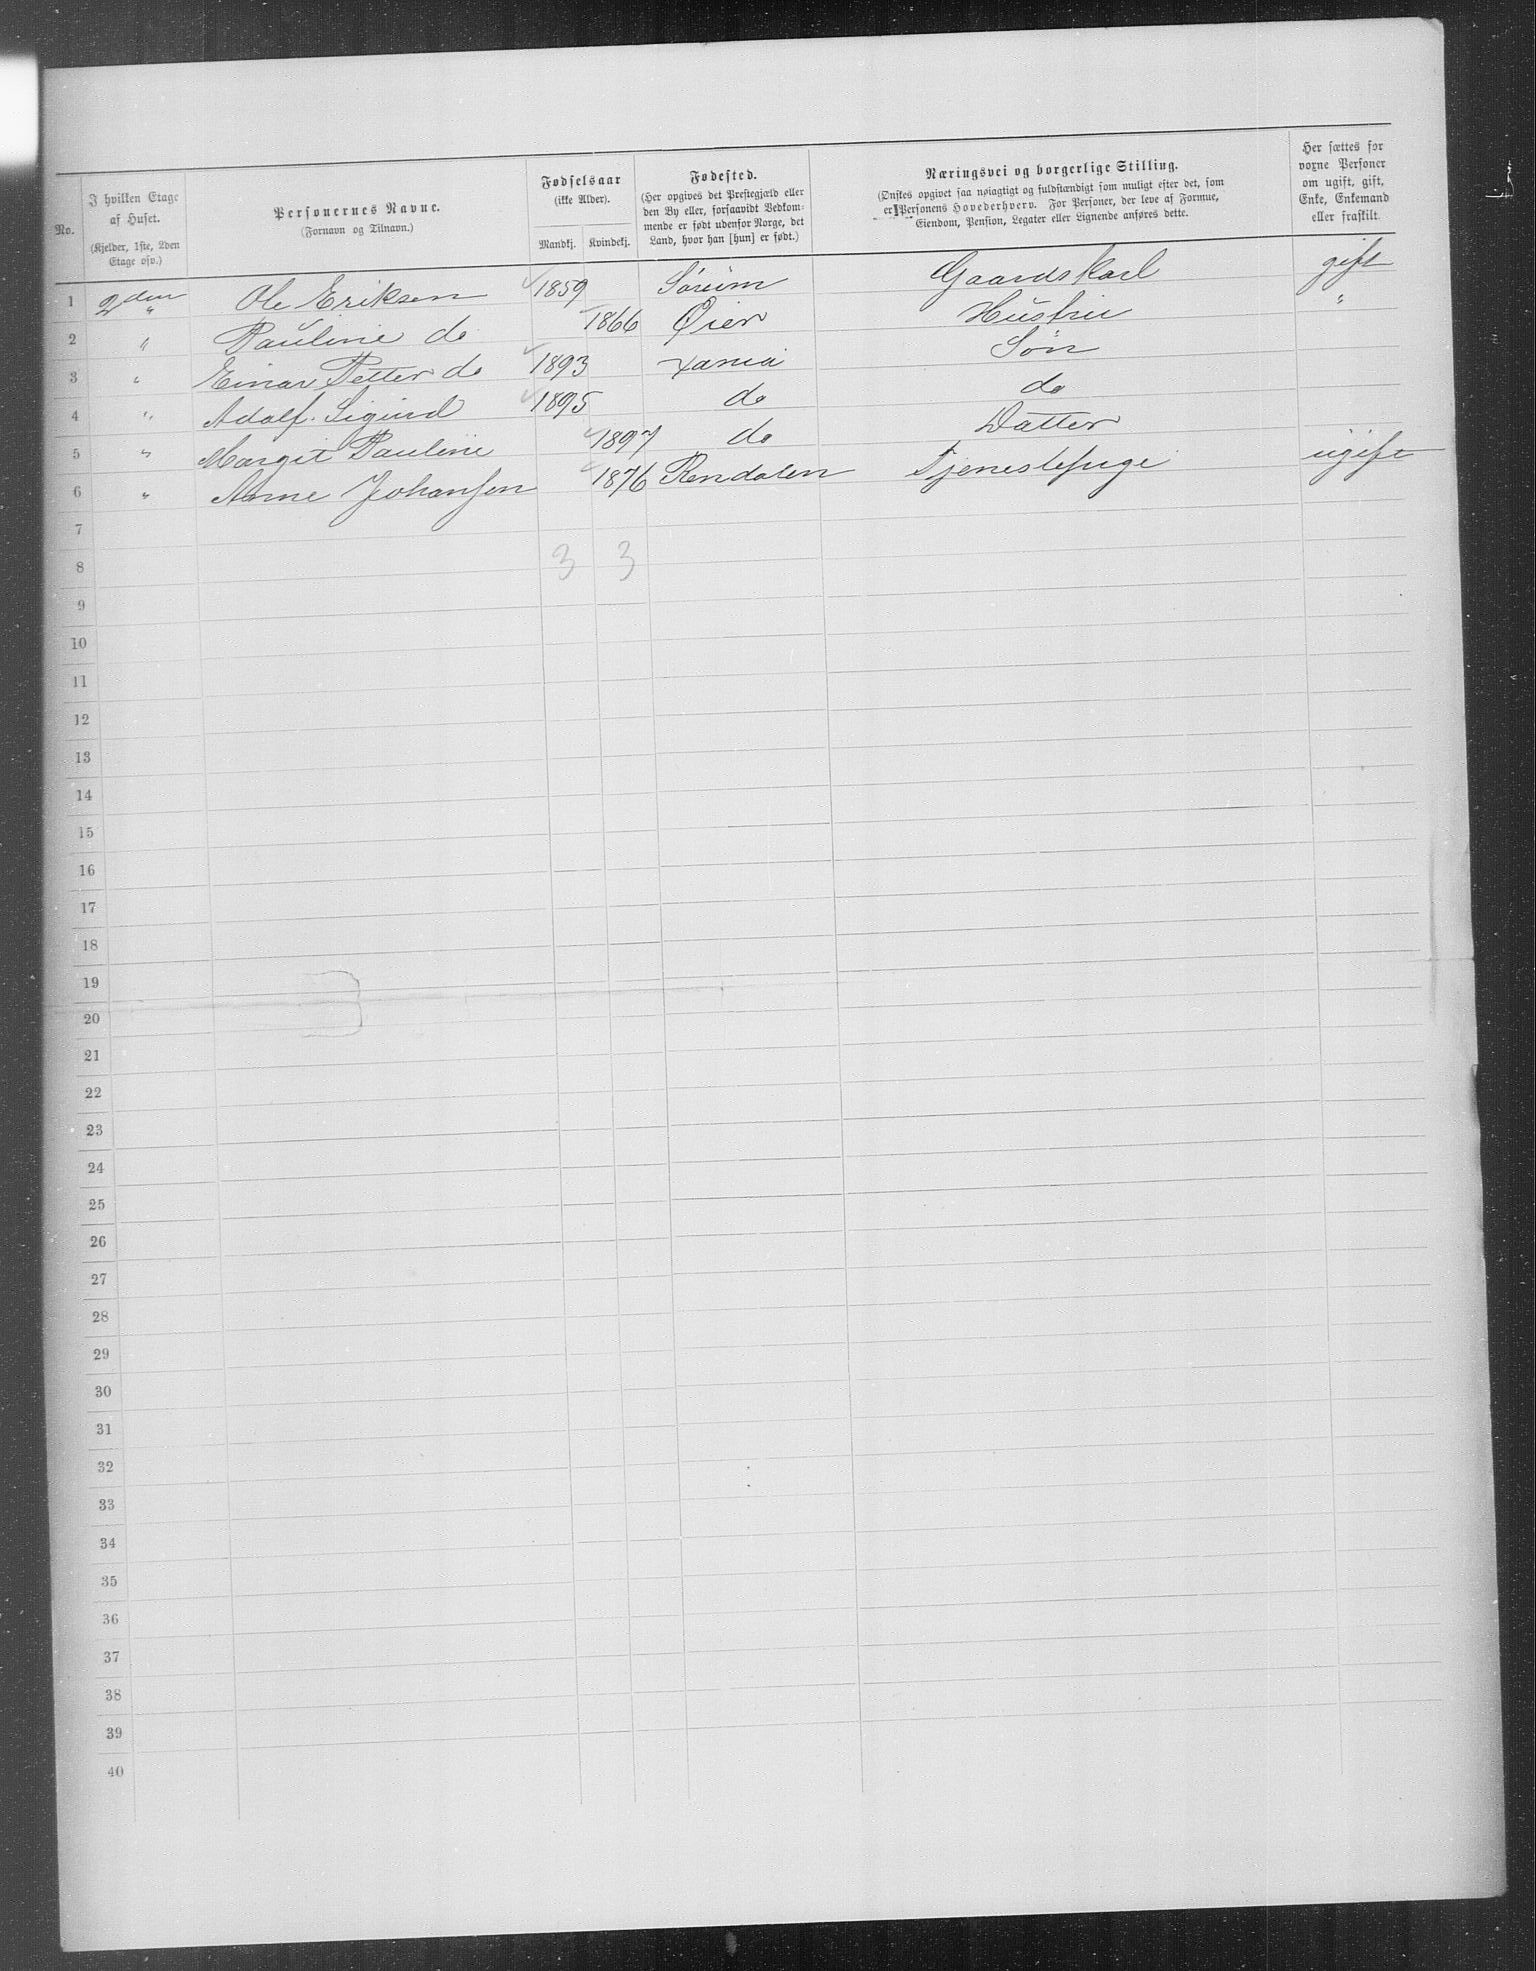 No. | I hvilken Etage af Huset. (Kjelder, 1ste, 2den Etage osv.) | Personernes Navne. (Fornavn og Tilnavn.) | Fødselsaar (ikke Alder). Mandkj. | Kvindekj. | Fødested. (Her opgives det Prestegjæld eller den By eller, forsaavidt Vedkommende er født udenfor Norge, det Land, hvor han [hun] er født.) | Næringsvei og borgerlige Stilling. (Ønskes opgivet saa nøiagtigt og fuldstændigt som muligt efter det, som er Personens Hovederhverv. For Personer, der leve af Formue, Eiendom, Pension, Legater eller Lignende anføres dette. | Her sættes for voxne Personer om ugift, gift, Enke, Enkemand eller fraskilt.
1 2den " Ole Eriksen 1859 Sørum Gaardskarl gift
2 " Pauline do 1866 Øier Hustru "
3 " Einar Petter do 1893 Xania Søn
4 " Adolf Sigurd 1895 do do
5 " Margit Pauline 1897 do Datter
6 " Anne Johansen 1876 Rendalen Tjenestepige ugift
7
8 3 3
9
10
11
12
13
14
15
16
17
18
19
20
21
22
23
24
25
26
27
28
29
30
31
32
33
34
35
36
37
38
39
40